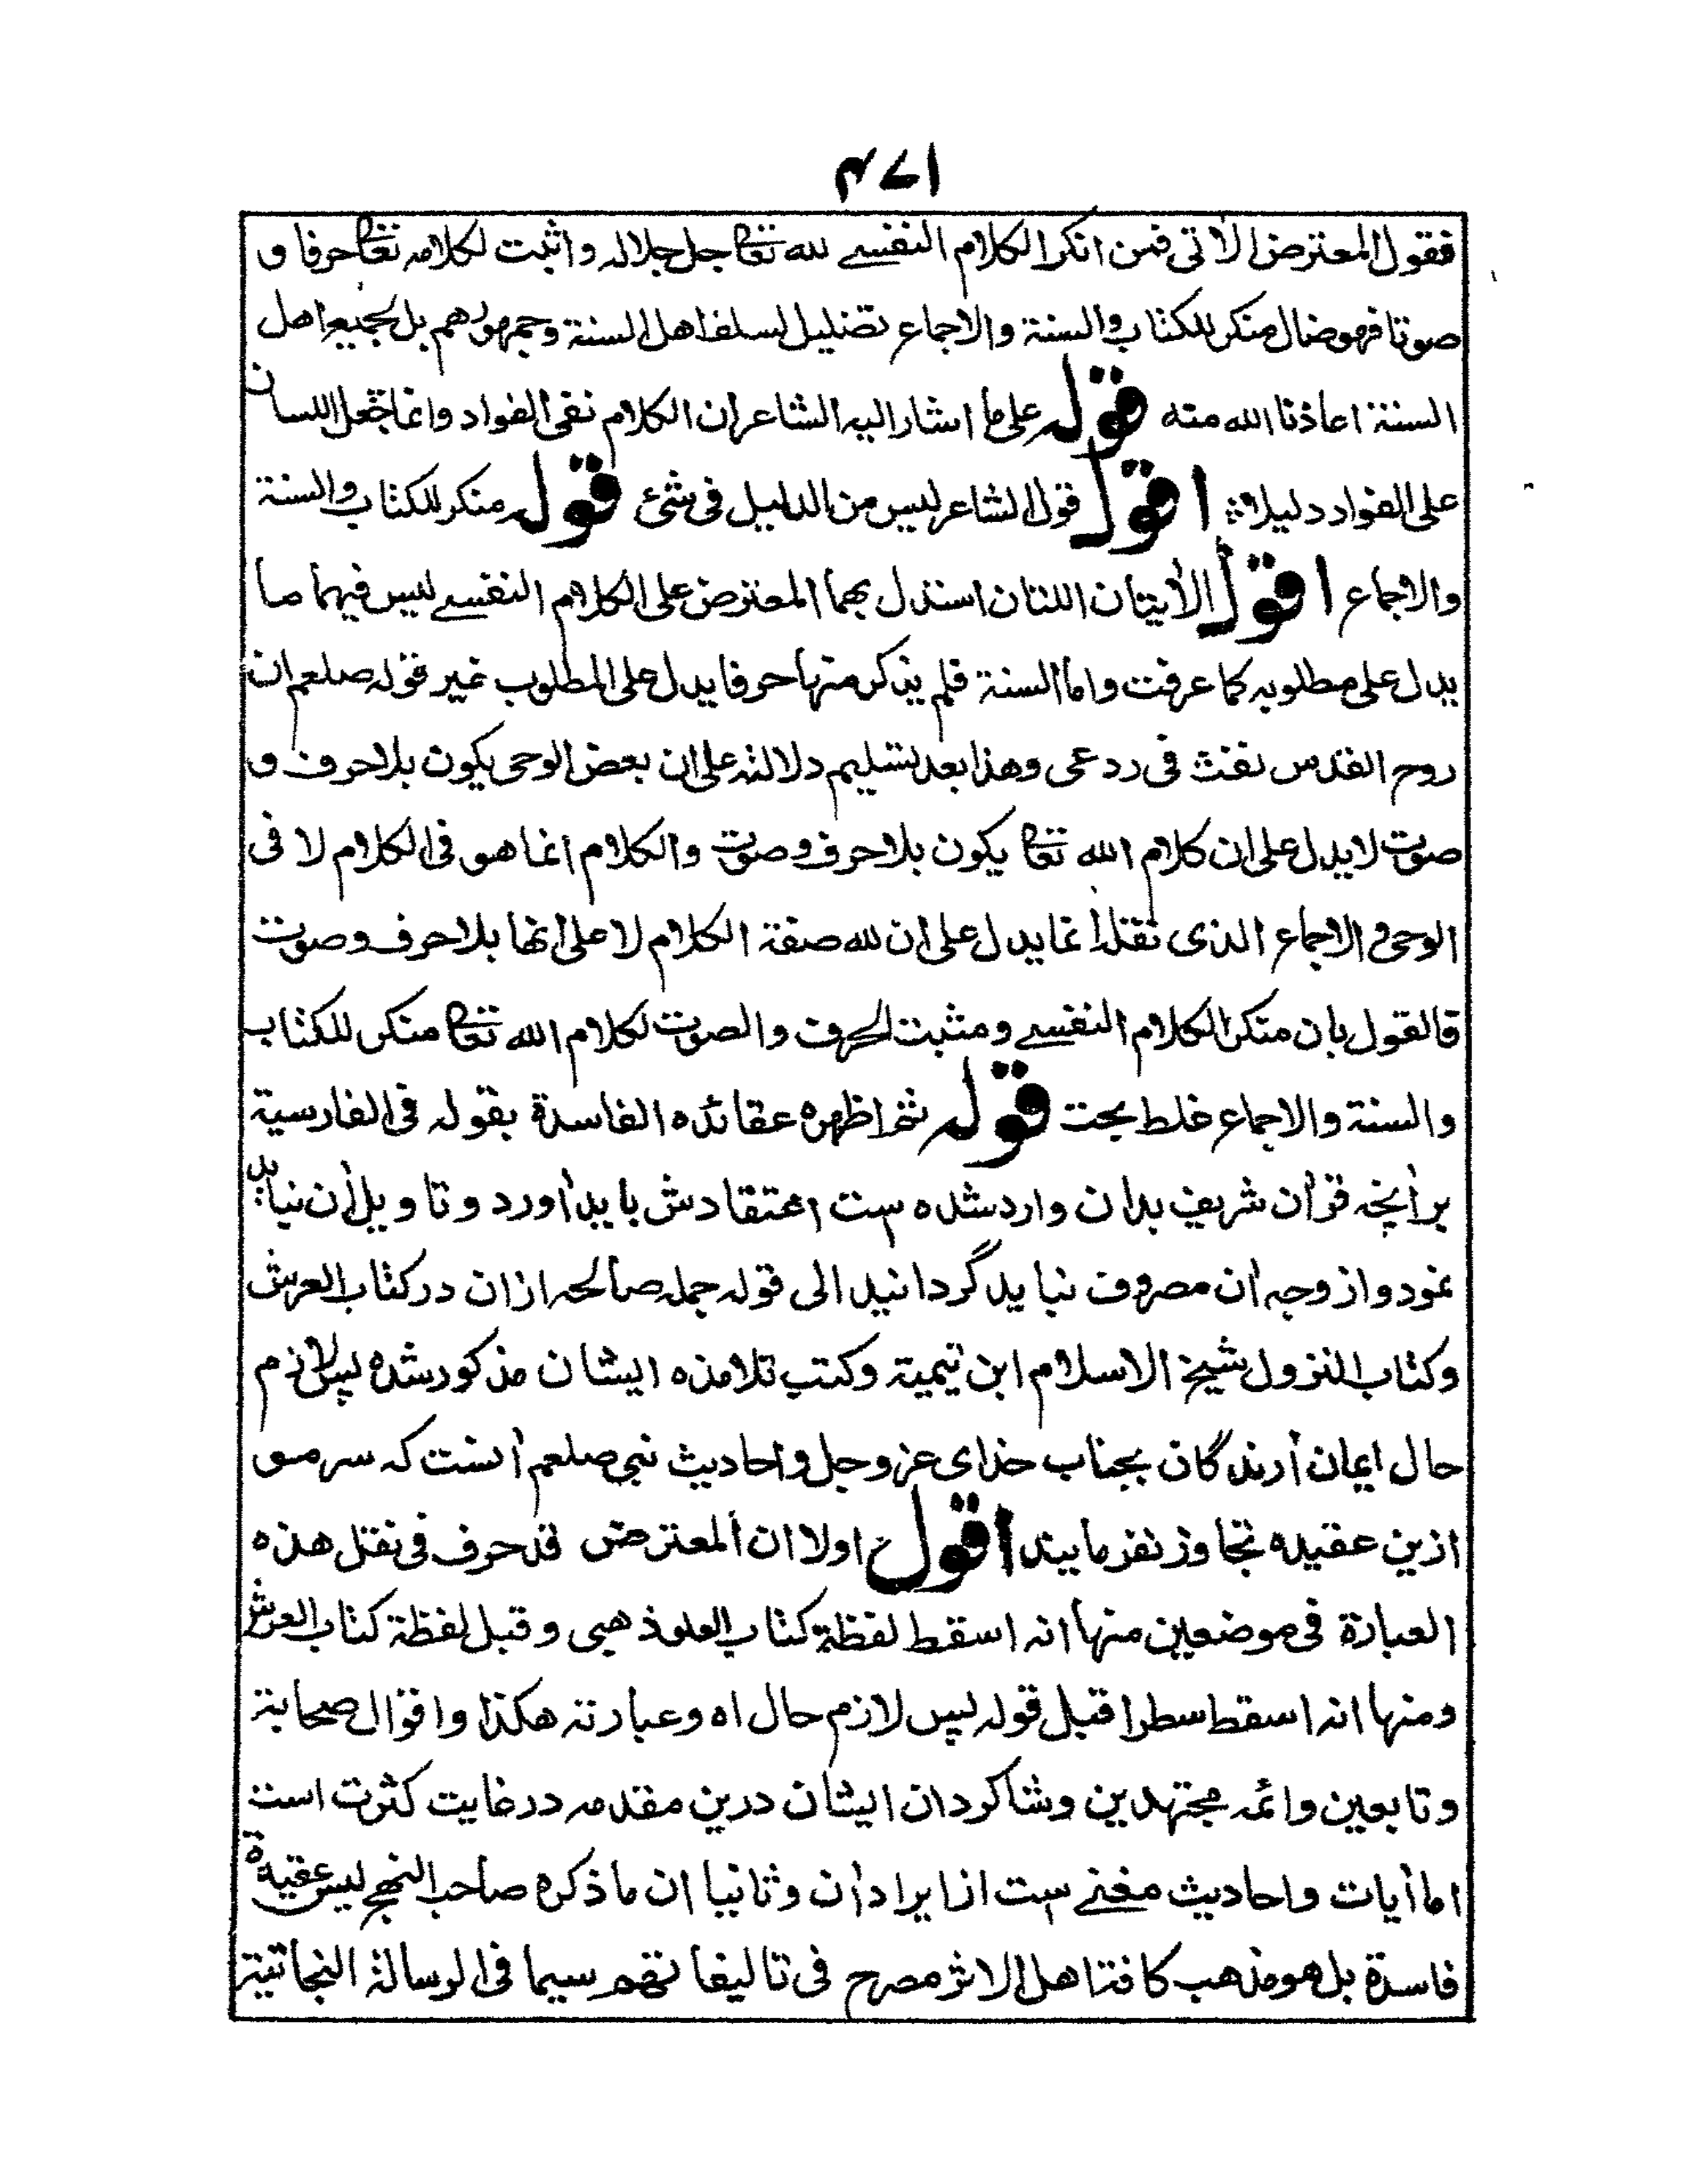 ۴۷۱
فقول المعترض الآتی فمن انکر الکلام النفسے لله تعا جل جلاله و اثبت لکلامه تعا حرفا و
صوتا فهو ضال منکر للکتاب و السنة والاجماع تضلیل لسلف اهل السنة و جمهورهم بل لجمیع اهل
السنة اعاذنا الله منه قوله علی ما اشار الیه الشاعر ان الکلام لفی الفواد وانما جعل اللسان
علی الفواد دلیلا اقول قول الشاعر لیس من الدلیل فی شئ قوله منکر للکتاب والسنة
والاجماع اقول الأیتان اللتان استدل بهما المعترض علی الکلام النفسے لیس فیهما ما
یدل علی مطلوبه کما عرفت واما السنة فلم یذکر منها حرفا یدل علی المطلوب غیر قوله صلعم ان
روح القدس نفث فی روعی وهذا بعد تسلیم دلالته علی ان بعض الوحی یکون بلا حرف و
صوت لا یدل علی ان کلام الله تعا یکون بلا حرف و صوت والکلام انما هو فی الکلام لا فی
الوحی و الاجماع الذی نقل انما یدل علی ان لله صفة الکلام لا علی انها بلا حرف و صوت
فالقول بان منکر الکلام النفسے و مثبت الحرف والصوت لکلام الله تعا منکر للکتاب
والسنة والاجماع غلط بحت قوله ثم اظهره عقائده الفاسدة بقوله فی الفارسیة
برآنچه قرآن شریف بدان وارد شده ست اعتقادش باید آورد و تاویل آن نباید
نمود و از وجه آن مصروف نباید گردانید الی قوله جمله صالحه ازان در کتاب العرش
وکتاب النزول شیخ الاسلام ابن تیمیة وکتب تلامذه ایشان مذکور شده پس لازم
حال ایمان آرندگان بجناب خدای عزوجل و احادیث نبی صلعم آنست که سرمو
ازین عقیده تجاوز نفرمایند اقول اولا ان المعترض قد حرف فی نقل هذه
العبارة فی موضعین منها انه اسقط لفظة کتاب العلو ذهبی و قبل لفظة کتاب العرش
ومنها انه اسقط سطرا قبل قوله پس لازم حال اه وعبارته هکذا واقوال صحابة
وتابعین وائمه مجتهدین وشاکردان ایشان درین مقدمه در غایت کثرت است
اما آیات و احادیث مغنے ست از ایراد آن و ثانیا ان ما ذکره صاحب النهج لیس عقیدة
فاسدة بل هو مذهب کافة اهل الاثر مصرح فی تالیفاتهم سیما فی الرسالة النجاتیة